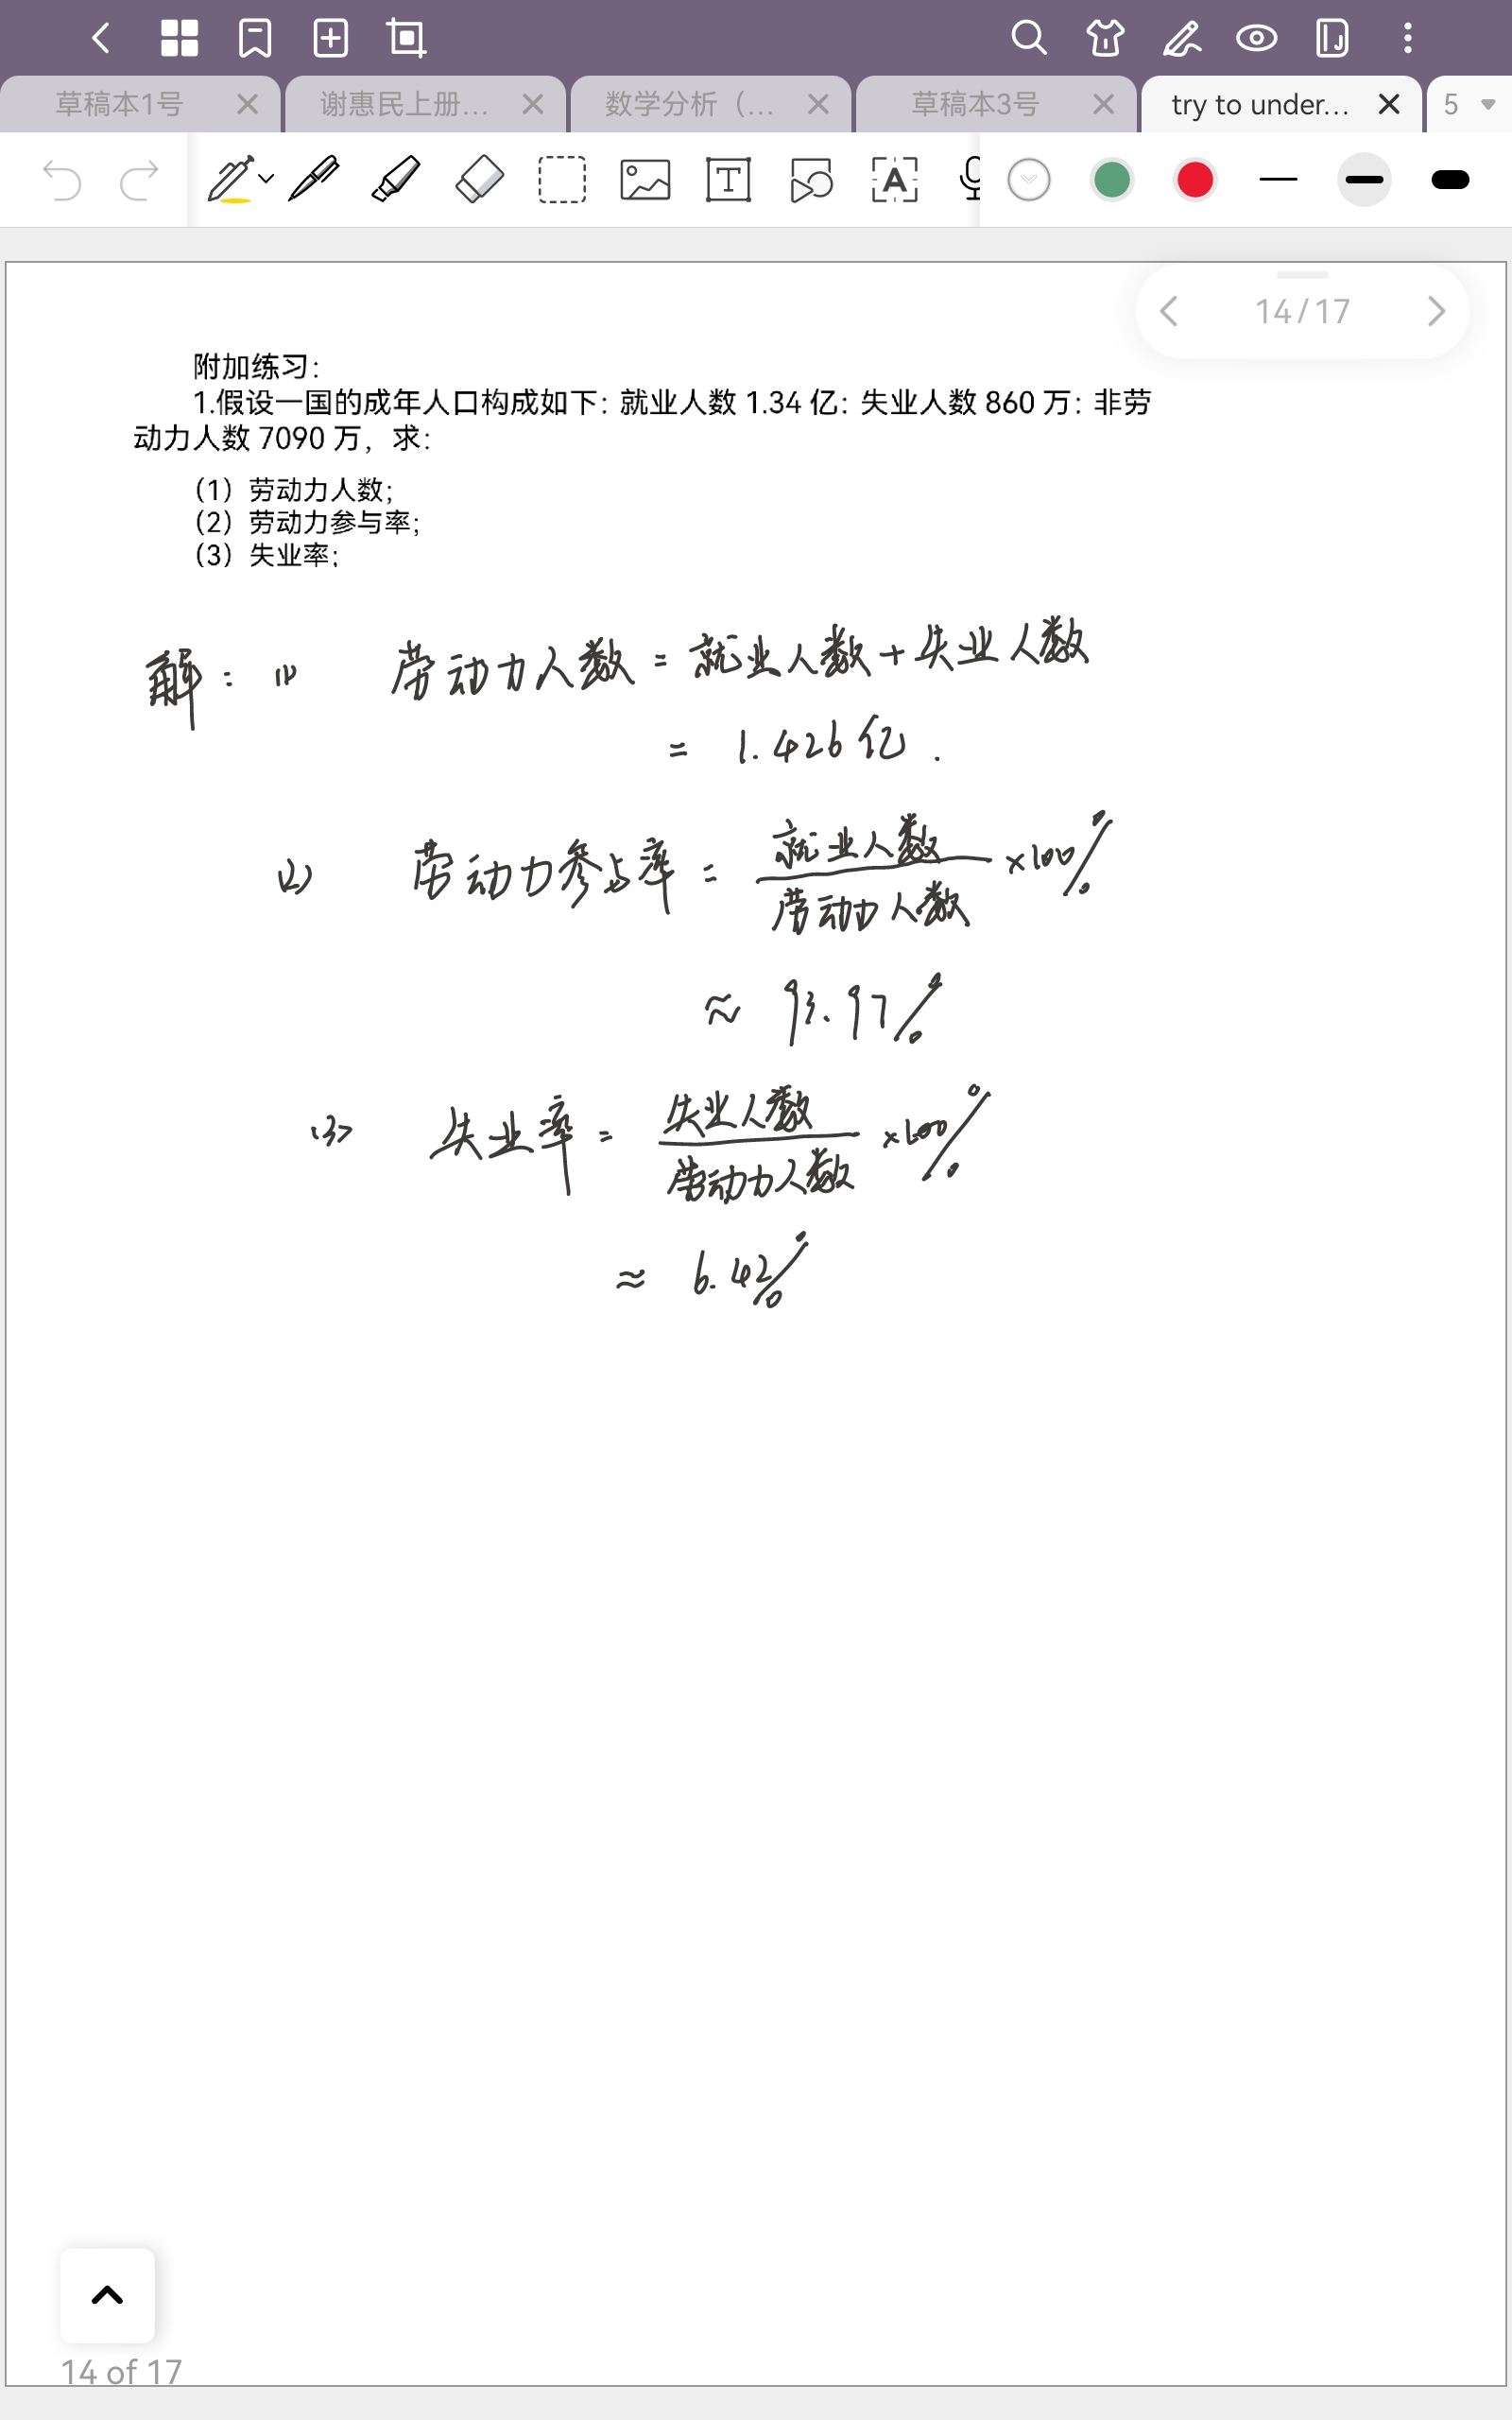 草稿本1号
谢惠民上册...
数学分析（...
草稿本3号
try to under...
5
14/17
附加练习：
1.假设一国的成年人口构成如下：就业人数 1.34 亿：失业人数 860 万：非劳
动力人数 7090 万，求：
（1）劳动力人数；
（2）劳动力参与率；
（3）失业率；
解：(1) 劳动力人数 = 就业人数 + 失业人数
= 1.426亿.
(2) 劳动力参与率 = 就业人数/劳动力人数 ×100%
≈ 93.97%
(3) 失业率 = 失业人数/劳动力人数 ×100%
≈ 6.42%
14 of 17